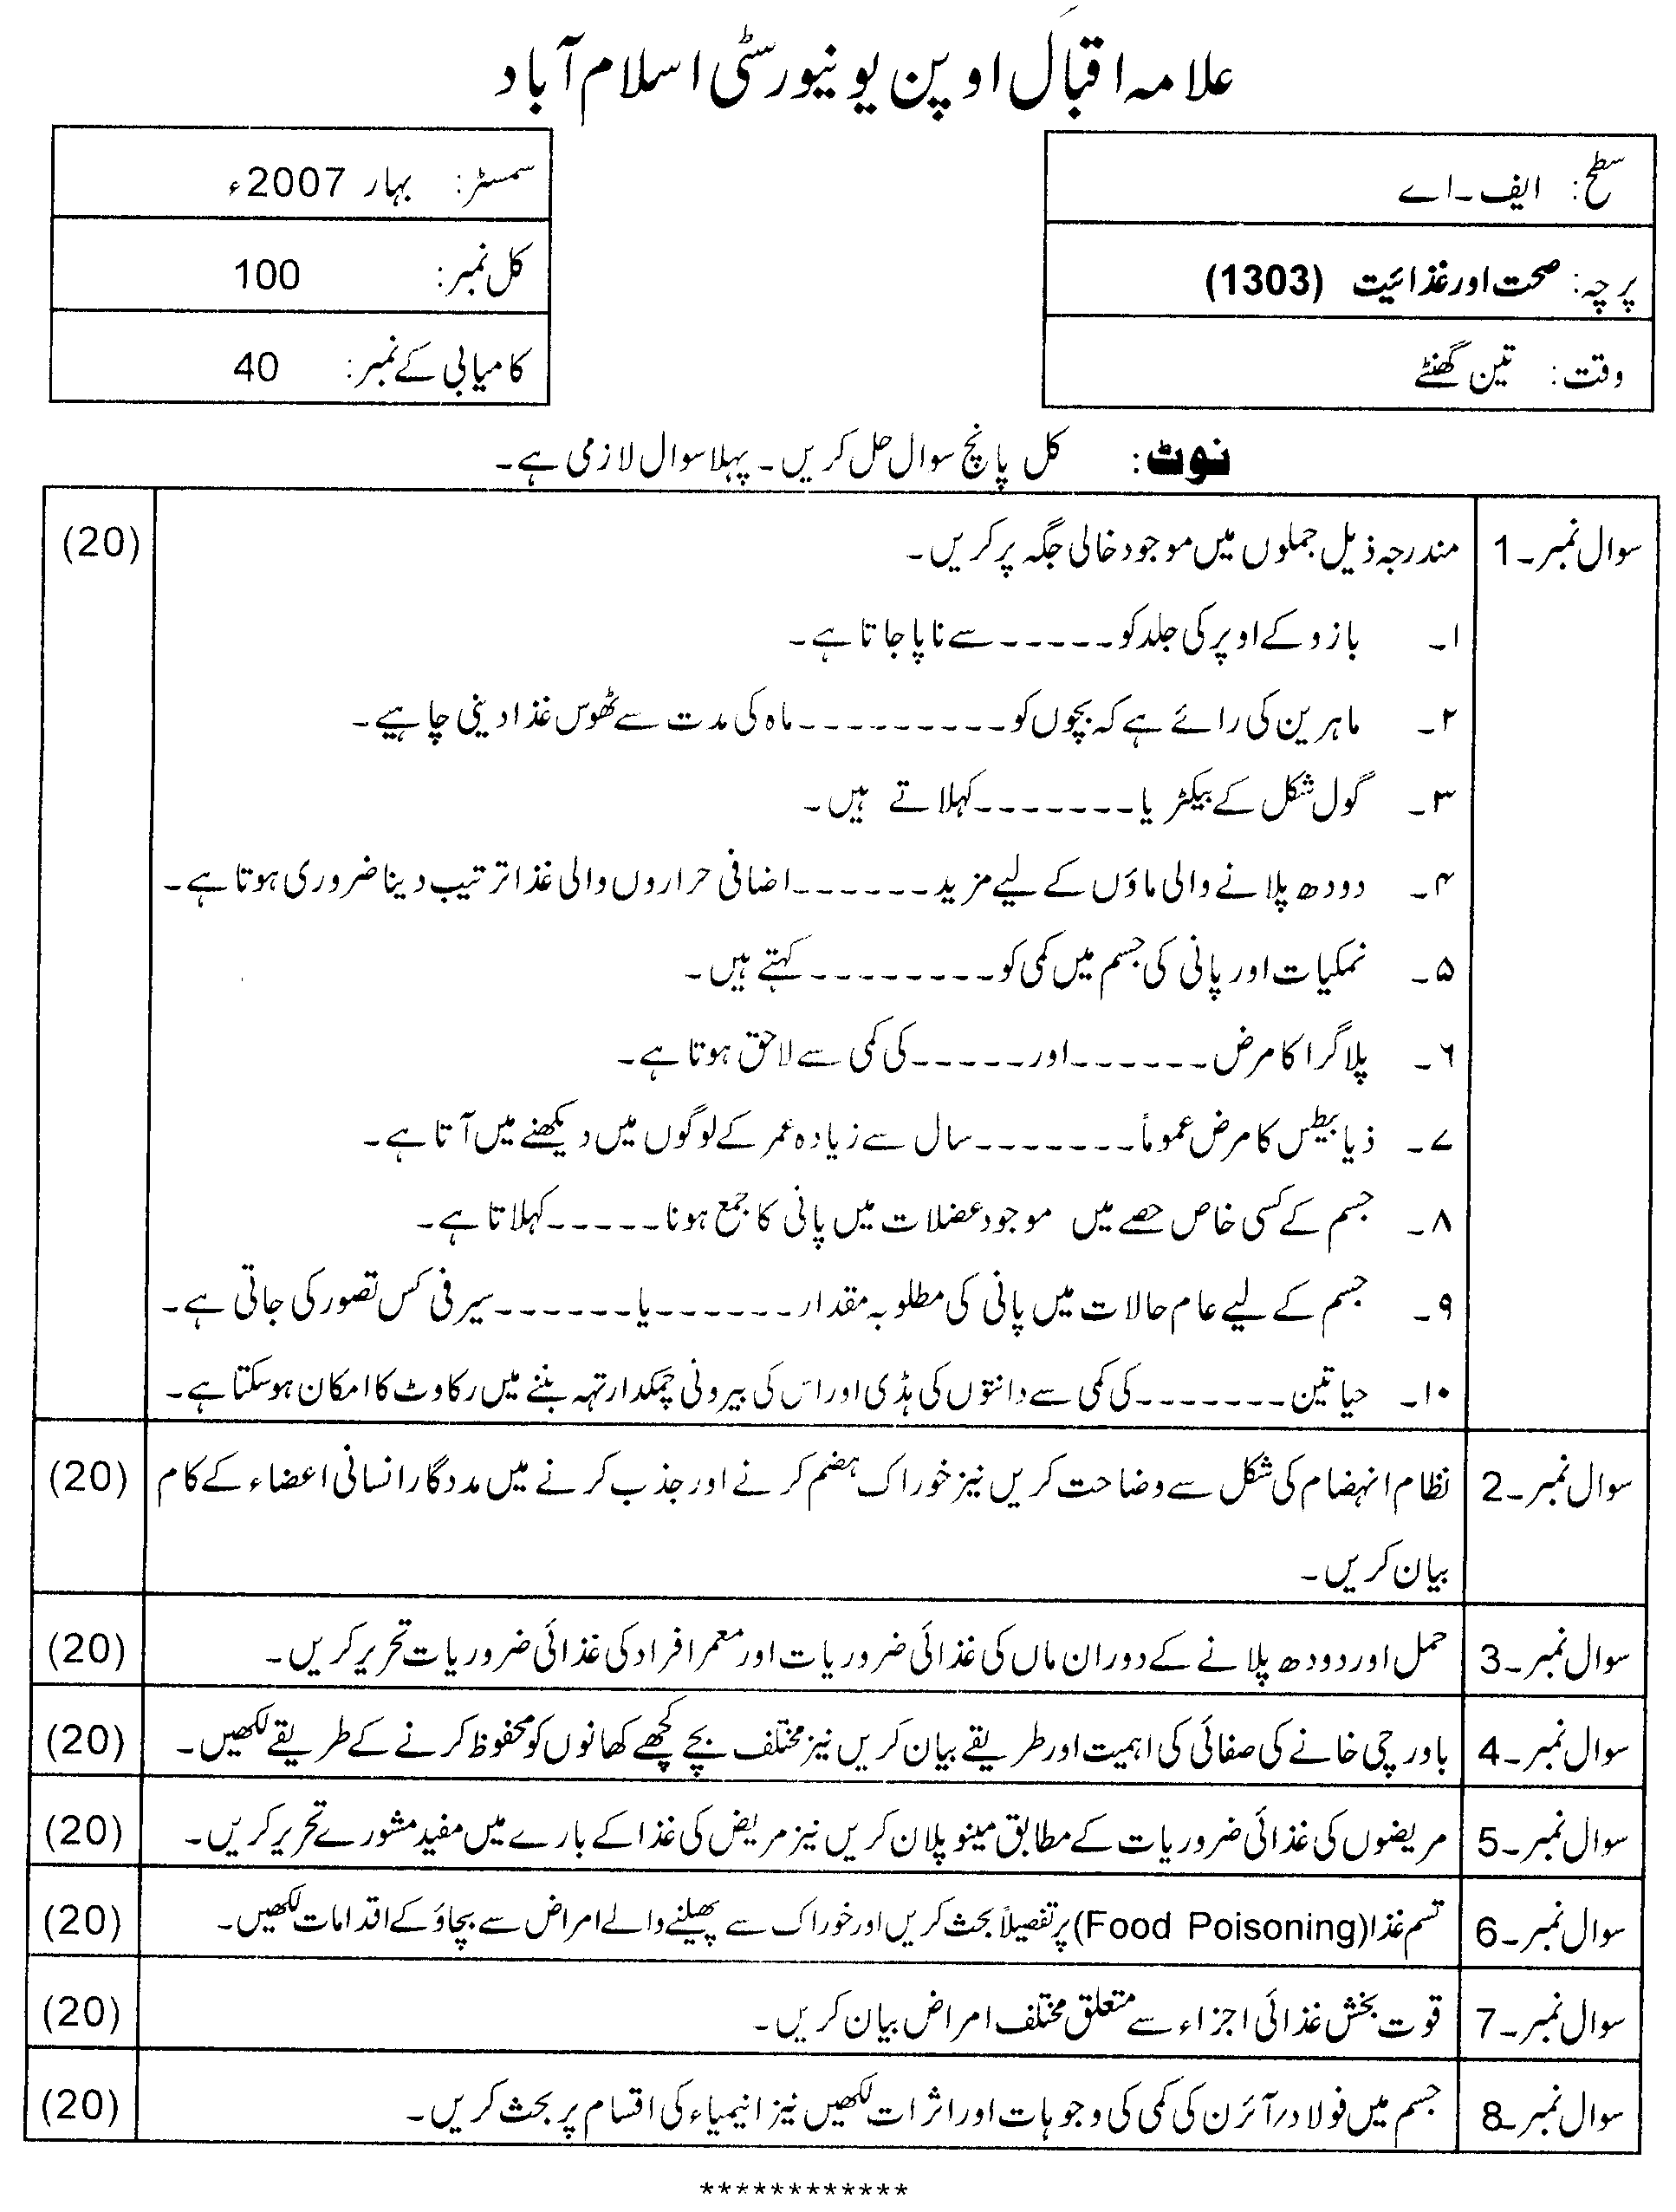 علامہ اقبال اوپن یونیورسٹی اسلام آباد
سطح: ایف۔اے
سمسٹر: بہار 2007ء
پرچہ: صحت اور غذائیت (1303)
کل نمبر: 100
وقت: تین گھنٹے
کامیابی کے نمبر: 40
نوٹ: کل پانچ سوال حل کریں۔ پہلا سوال لازمی ہے۔
سوال نمبر۔1 مندرجہ ذیل جملوں میں موجود خالی جگہ پر کریں۔ (20)
۱۔ بازو کے اوپر کی جلد کو-----سے ناپا جاتا ہے۔
۲۔ ماہرین کی رائے ہے کہ بچوں کو---------ماہ کی مدت سے ٹھوس غذا دینی چاہیے۔
۳۔ گول شکل کے بیکٹریا-------کہلاتے ہیں۔
۴۔ دودھ پلانے والی ماؤں کے لیے مزید------اضافی حراروں والی غذا ترتیب دینا ضروری ہوتا ہے۔
۵۔ نمکیات اور پانی کی جسم میں کمی کو--------کہتے ہیں۔
۶۔ پلاگرا کا مرض------اور-----کی کمی سے لاحق ہوتا ہے۔
۷۔ ذیابیطس کا مرض عموماً-------سال سے زیادہ عمر کے لوگوں میں دیکھنے میں آتا ہے۔
۸۔ جسم کے کسی خاص حصے میں موجود عضلات میں پانی کا جمع ہونا-----کہلاتا ہے۔
۹۔ جسم کے لیے عام حالات میں پانی کی مطلوبہ مقدار------یا------سیر فی کس تصور کی جاتی ہے۔
۱۰۔ حیاتین-------کی کمی سے دانتوں کی ہڈی اور اس کی بیرونی چمکدار تہہ بننے میں رکاوٹ کا امکان ہو سکتا ہے۔
سوال نمبر۔2 نظام انہضام کی شکل سے وضاحت کریں نیز خوراک ہضم کرنے اور جذب کرنے میں مددگار انسانی اعضاء کے کام (20)
بیان کریں۔
سوال نمبر۔3 حمل اور دودھ پلانے کے دوران ماں کی غذائی ضروریات اور معمر افراد کی غذائی ضروریات تحریر کریں۔ (20)
سوال نمبر۔4 باورچی خانے کی صفائی کی اہمیت اور طریقے بیان کریں نیز مختلف بچے کچھے کھانوں کو محفوظ کرنے کے طریقے لکھیں۔ (20)
سوال نمبر۔5 مریضوں کی غذائی ضروریات کے مطابق مینو پلان کریں نیز مریض کی غذا کے بارے میں مفید مشورے تحریر کریں۔ (20)
سوال نمبر۔6 تسم غذا (Food Poisoning) پر تفصیلاً بحث کریں اور خوراک سے پھیلنے والے امراض سے بچاؤ کے اقدامات لکھیں۔ (20)
سوال نمبر۔7 قوت بخش غذائی اجزاء سے متعلق مختلف امراض بیان کریں۔ (20)
سوال نمبر۔8 جسم میں فولاد/آئرن کی کمی کی وجوہات اور اثرات لکھیں نیز انیمیاء کی اقسام پر بحث کریں۔ (20)
************